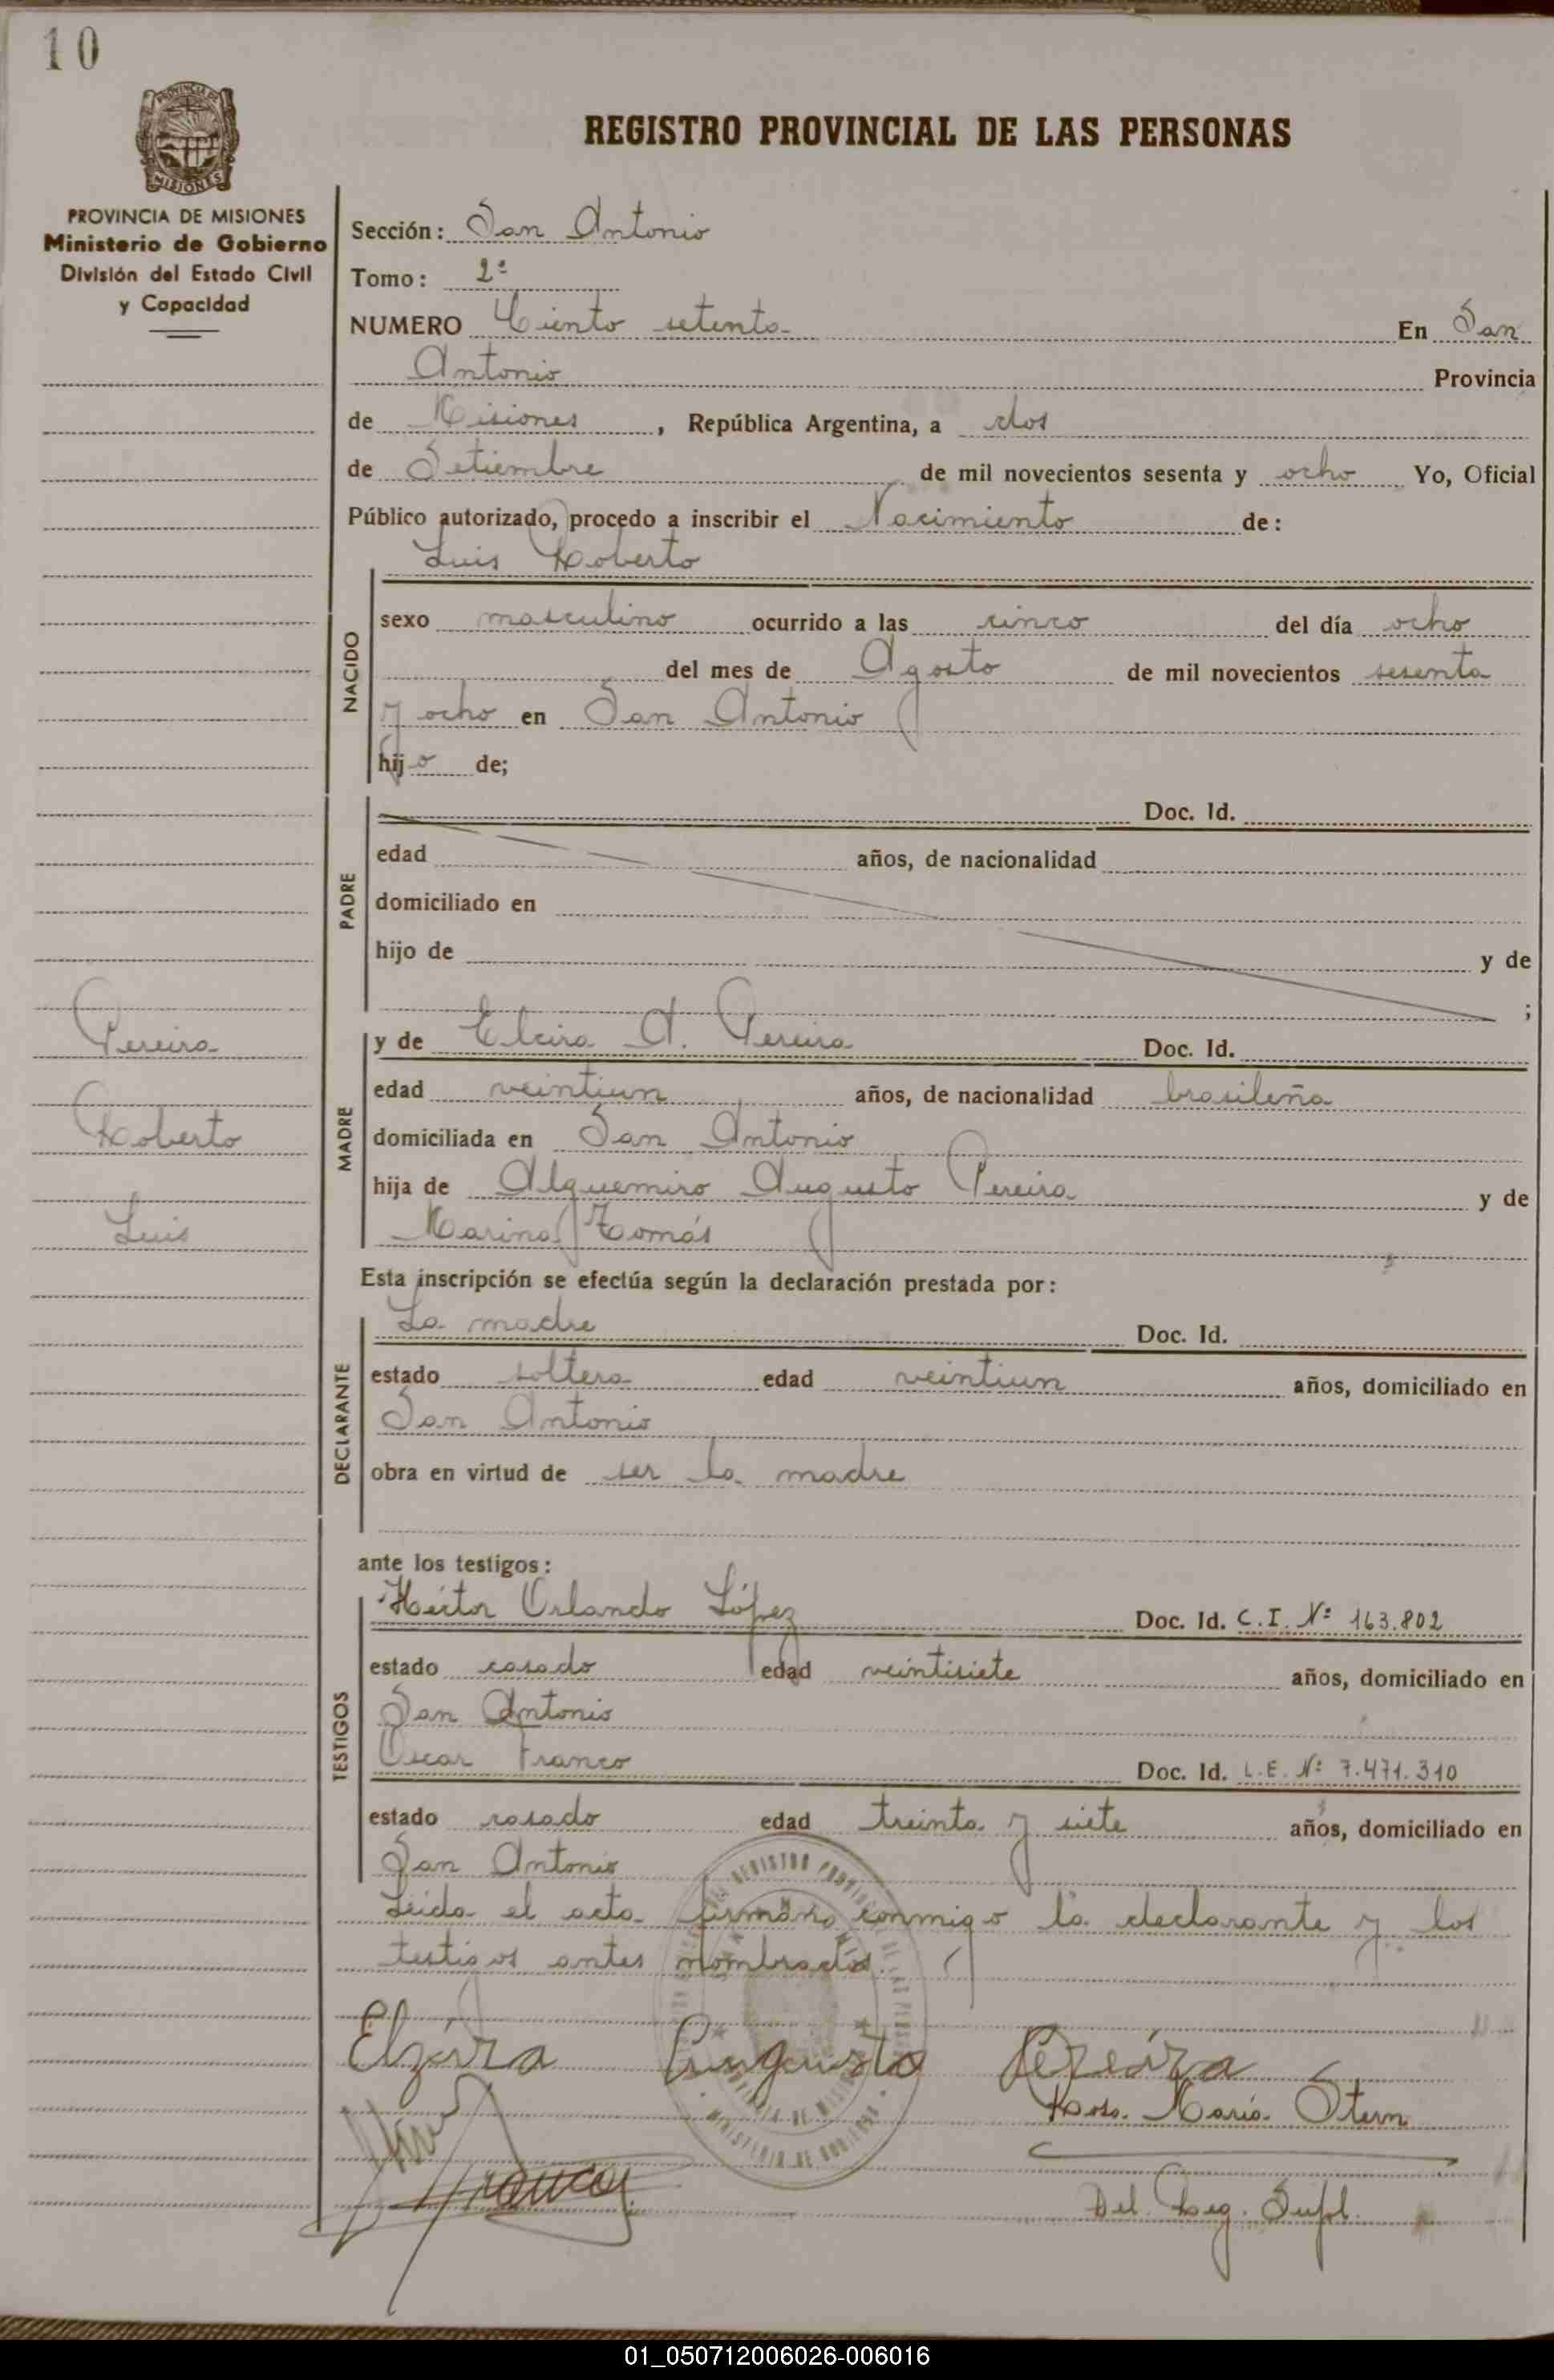 10
PROVINCIA DE MISIONES
PROVINCIA DE MISIONES
Ministerio de Gobierno
División del Estado Civil
y Capacidad
REGISTRO PROVINCIAL DE LAS PERSONAS
Sección: San Antonio
Tomo: 2º
NUMERO Ciento setenta En San
Antonio Provincia
de Misiones, República Argentina, a dos
de Setiembre de mil novecientos sesenta y ocho Yo, Oficial
Público autorizado, procedo a inscribir el Nacimiento de:
Luis Roberto
NACIDO
sexo masculino ocurrido a las cinco del día ocho
del mes de Agosto de mil novecientos sesenta
y ocho en San Antonio
hijo de;
PADRE
Doc. Id.
edad años, de nacionalidad
domiciliado en
hijo de y de
;
Pereira
Roberto
Luis
MADRE
y de Elcira A. Pereira Doc. Id.
edad veintiun años, de nacionalidad brasileña
domiciliada en San Antonio
hija de Alguemiro Augusto Pereira y de
Marina Tomás
Esta inscripción se efectúa según la declaración prestada por:
DECLARANTE
La madre Doc. Id.
estado soltera edad veintiun años, domiciliado en
San Antonio
obra en virtud de ser la madre
ante los testigos:
TESTIGOS
Héctor Orlando López Doc. Id. C.I. Nº 163.802
estado casado edad veintisiete años, domiciliado en
San Antonio
Oscar Franco Doc. Id. L.E. Nº 7.471.310
estado casado edad treinta y siete años, domiciliado en
San Antonio
Leída el acta firman conmigo la declarante y los
testigos antes nombrados.
Elzira Augusto Pereira
Rosa María Stern
Franco
Del. Reg. Supl.
01_050712006026-006016